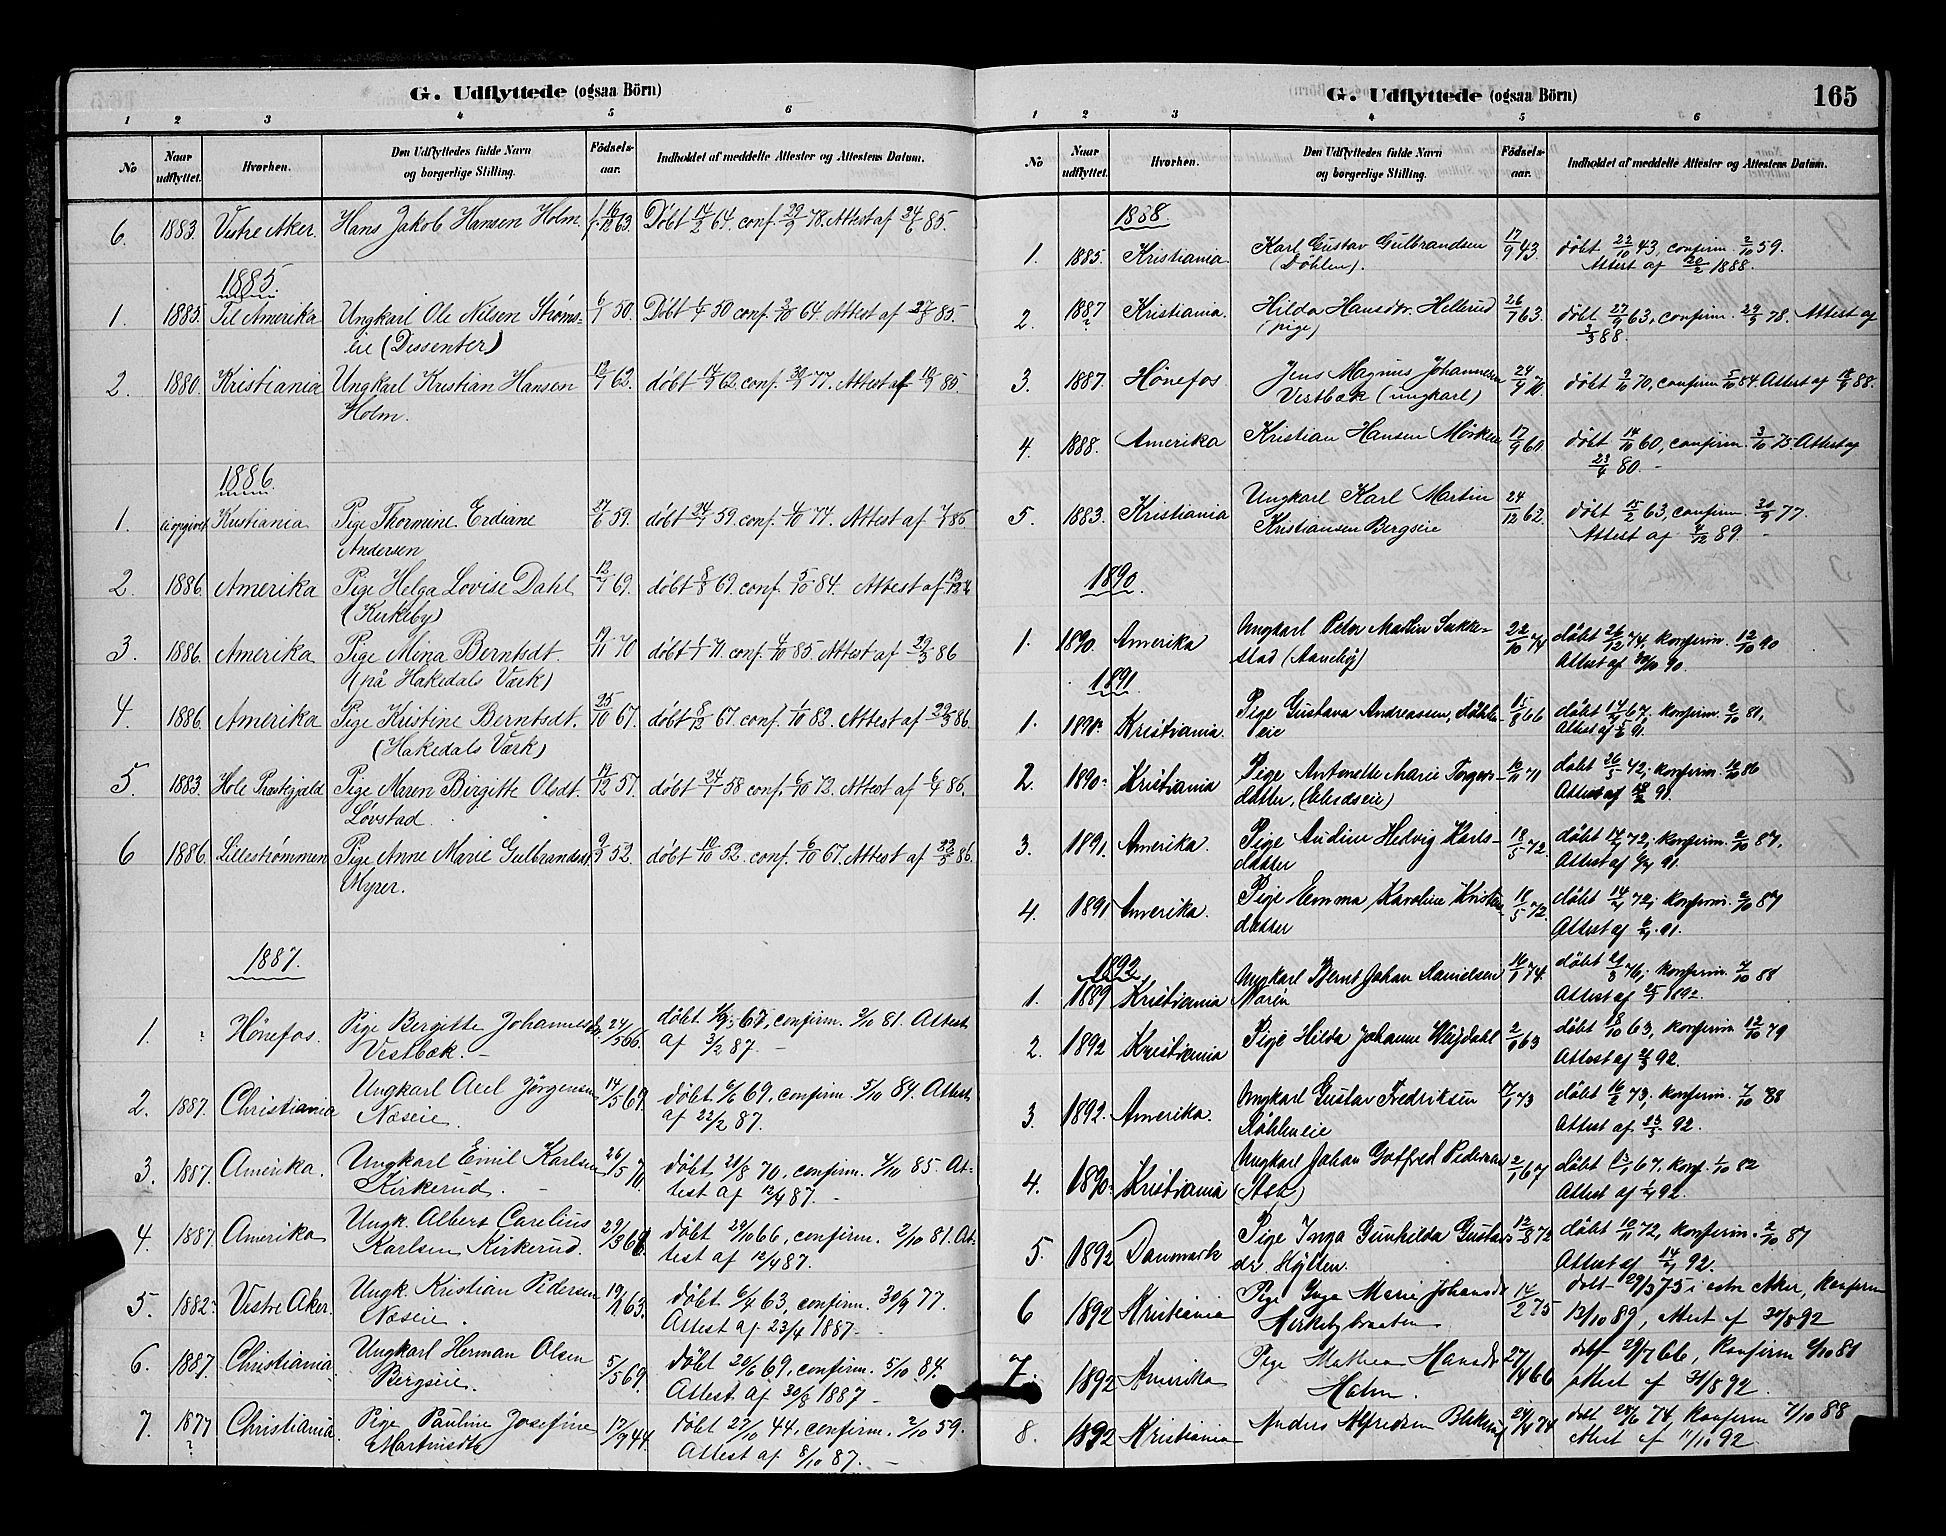 G. Udflyttede (ogsaa Börn)
1 2 3 4 5 6
No Naar udflyttet. Hvorhen. Den Udflyttedes fulde Navn og borgerlige Stilling. Födsels-aar. Indholdet af meddelte Attester og Attestens Datum.
6. 1883. Vestre Aker. Hans Jakob Hansen Holm. f. 16/12 63. Döbt 14/2 64. conf. 29/9 78. Attest af 24/ 85.
1885.
1. 1885. Til Amerika Ungkarl Ole Nilsen Strøms- 50. Döbt 50 conf. 2/10 64. Attest af 85.
eie (Dissenter)
2. 1880. Kristiania Ungkarl Kristian Hansen 62. döbt 62. conf. 30/9 77. Attest af 85.
Holm.
1886.
1. ei opgivet Kristiania Pige Thormine Erdiane 59. döbt 59. conf. /10 74. Attest af 86
Andersen
2. 1886. Amerika Pige Helga Lovise Dahl 69. döbt 8/8 69. conf. 5/10 84. Attest af
(Kirkeby)
3. 1886. Amerika Pige Mina Berntsdt. 70 döbt 71. conf. 4/10 85. Attest af 86
(på Hakedals Værk)
4. 1886. Amerika Pige Kristine Berntsdt. 25/10 67. döbt 8/12 67. conf. 1/10 82. Attest af 86.
(Hakedals Værk)
5. 1883. Hole Præstegjæld Pige Maren Birgitte Olsdt. 19/12 57. döbt 24/1 58 conf. 6/10 72. Attest af 86.
Løvstad.
6 1886. Lillestrømmen Pige Anne Marie Gulbrandsdt 9/9 52. döbt 10/10 52. conf. 6/10 67. Attest af 86.
Myrer.
1887.
1. " Hönefos. Pige Bergitte Johannesdtr. 24/5 66. döbt 67, confirm. 2/10 81. Attest
Vestbæk. – af 3/2 87. –
2. 1887. Christiania Ungkarl Axel Jörgensen 14/5 69. döbt 6/6 69, confirm. 5/10 84. Attest
Næseie. af 22/2 87.
3. 1887. Amerika. Ungkarl Emil Karlsen 26/5 70. döbt 21/8 70, confirm. 4/10 85 At-
Kirkerud. – test af 12/4 87. –
4. 1887. Amerika Ungk. Albert Carelius 29/3 66. döbt 29/10 66, confirm. 2/10 81. At-
Karlsen Kirkerud. test af 12/4 87.
5. 1882. Vestre Aker. Ungk. Kristian Pedersen 63. döbt 6/4 63, confirm. 30/9 77.
Næseie. Attest af 23/4 1887. –
6. 1887. Christiania. Ungkarl Herman Olsen 5/5 69. döbt 20/6 69, confirm. 5/10 84.
Bergseie. Attest. af 30/8 1887 –
7. 1877 ? Christiania. Pige Pauline Josefine 17/9 44. döbt 27/10 44, confirm. 2/10 59.
Martinsdtr Attest af 8/10 87. –
G. Udflyttede (ogsaa Börn) 165
1 2 3 4 5 6
No Naar udflyttet. Hvorhen. Den Udflyttedes fulde Navn og borgerlige Stilling. Födsels-aar. Indholdet af meddelte Attester og Attestens Datum.
1888.
1. 1885. Kristiania Karl Gustav Gulbrandsen 17/9 43. döbt 22/10 43, confirm. 2/10 59.
(Döhlen). Attest af 20/2 1888.
2. 1887 ? Kristiania. Hilda Hansdtr. Hellerud 26/7 63. döbt 27/9 63, confirm. 29/9 78. Attest af
(pige) 3/3 88.
3. 1887. Hönefos Jens Magnus Johannesen 24/9 70. döbt 9/10 70, confirm 5/10 84. Attest af 88.
Vestbæk (ungkarl)
4. 1888. Amerika Kristian Hansen Mörken 17/9 60. döbt 14/10 60, confirm. 3/10 75. Attest af
80. –
5. 1883. Kristiania Ungkarl Karl Martin 24/12 62. döbt 15/2 63, confirm. 30/9 77.
Kristiansen Bergseie Attest af 4/12 89. –
1890.
1. 1890. Amerika Ungkarl Peter Martin Sukke- 22/10 74 döbt 26/12 74, konfirm. 12/10 90
stad (Aaneby) Attest af 90.
1891.
1. 1890. Kristiania. Pige Gustava Andreassen, Döhlen 66 döbt 67; konfirm. 2/10 81.
eie Attest af 91.
2. 1890. Kristiania Pige Antonette Marie Torgers- 71 döbt konfirm. 86
datter, Attest af 91.
3. 1891. Amerika. Pige Audine Hedvig Karls- 18/5 72. döbt 72; konfirm. 2/10 87.
datter Attest af 91.
4. 1891 Amerika. Pige Emma Karoline Kristen- 18/5 72. döbt 72; konfirm. 2/10 87
datter Attest af 91.
1892
1. 1889 Kristiania Ungkarl Bernt Johan Danielsen 74. döbt konfirm. 7/10 88
Attest af 1892.
2. 1892 Kristiania Pige Hilda Johanne 63 döbt 18/10 63, konfirm 12/10 79
Attest af 92.
3. 1892. Amerika. Ungkarl Gustav Fredriksen 73 döbt 16/2 73; konfirm. 7/10 88
Döhleneie Attest af 92.
4. 1890. Kristiania Ungkarl Johan Gotfred Pedersen 67 döbt 67, konf. 1/10 82
(Ask) Attest af 92.
5. 1892 Danmark Pige Inga Gunhilda Gustav- 12/8 72 döbt 10/11 72, konfirm. 2/10 87
dr. Hytten. Attest af 14/ 92.
6 1892 Kristiania Pige Inga Marie Johansdr 14/2 75 dobt 29/3 75 i estre Aker, Konfirm
Kirkebybraaten 13/10 89, attest af 30/8 92
7. 1892 Amerika Pige Mathea Hansdr 27/4 66 dobt 29/7 66, Konfirm 2/10 81
Holm. Attest af 31/8 92.
8. 1892 Kristiania Anders Alfredsen 74 dobt 28/6 74, Konfirm 7/10 88
Attest af 11/10 92.